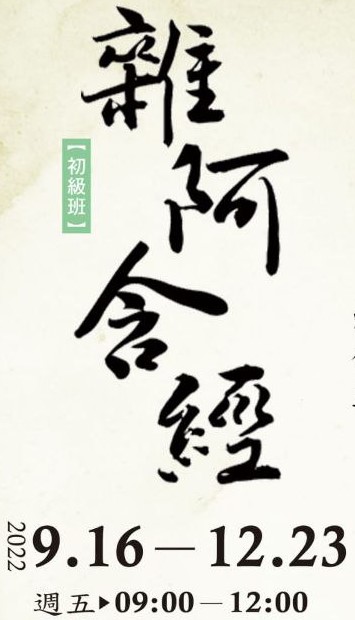 雜阿含經
【初級班】
2022 9.16－12.23
週五▶09:00－12:00